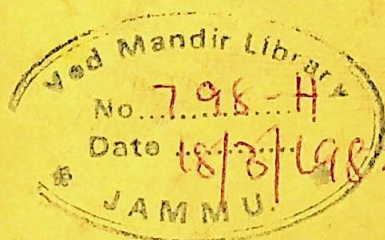 Ved Mandir Library
No. 798-H
Date 18/8/98
JAMMU.